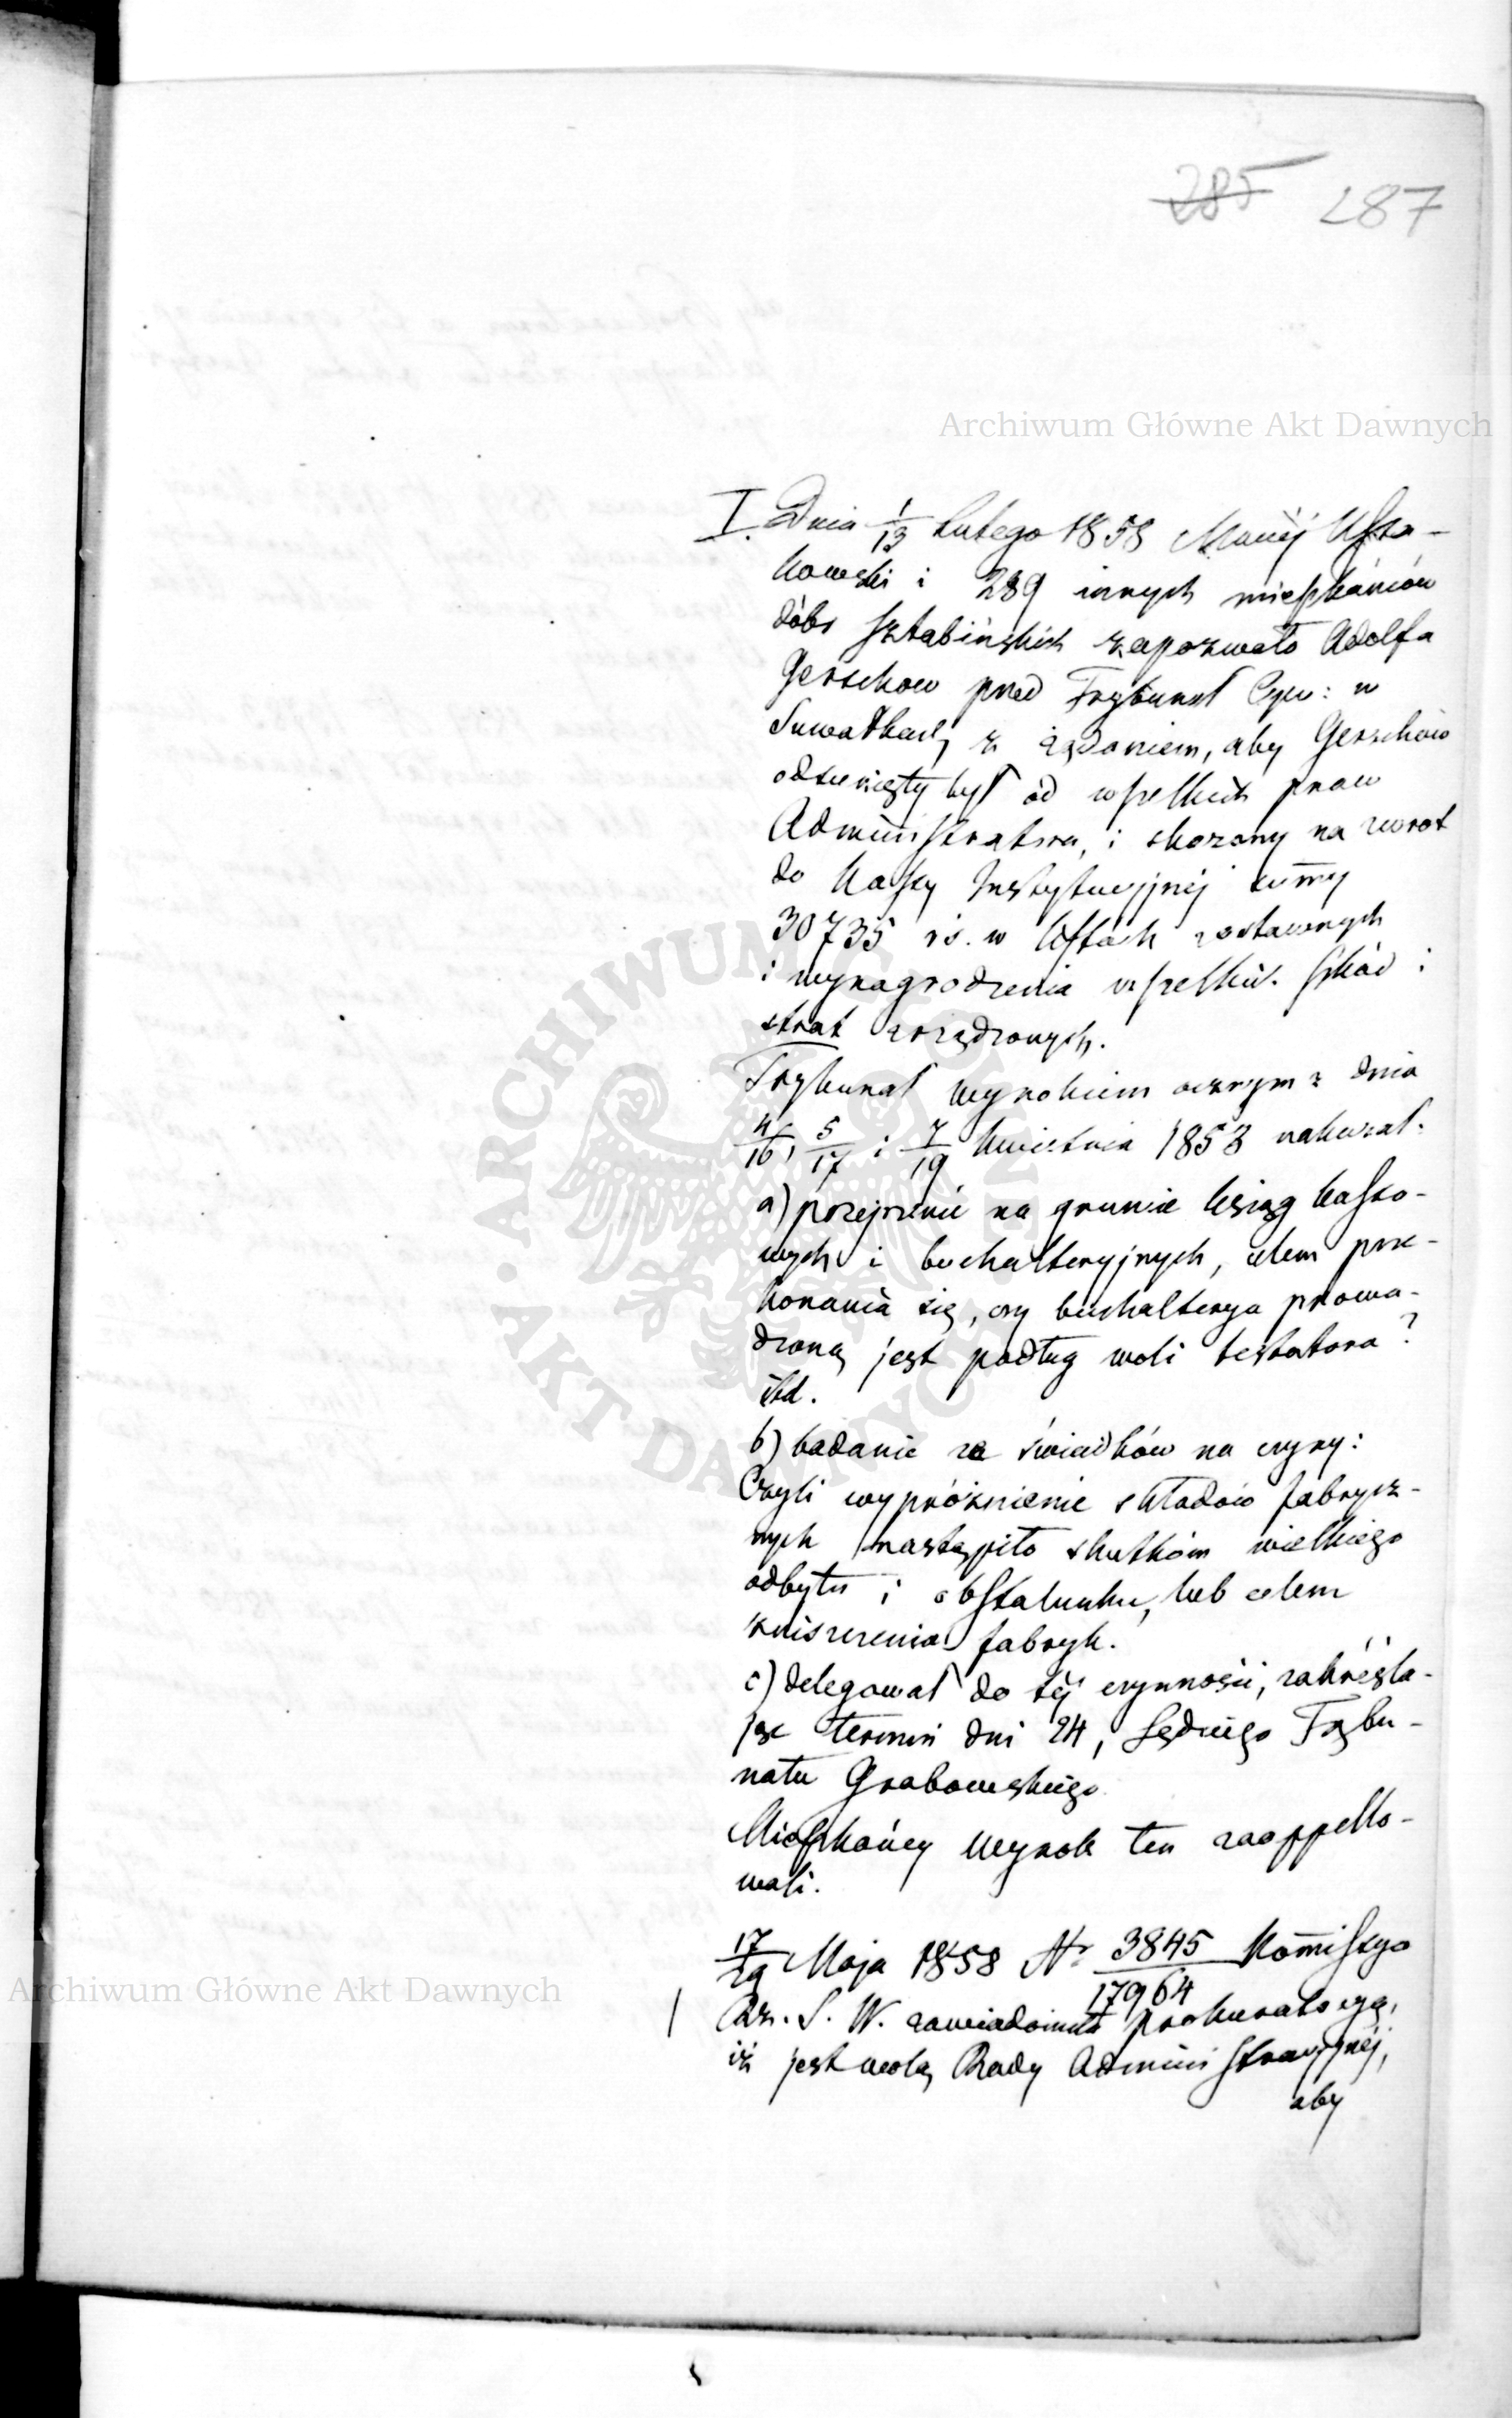 285 287
Archiwum Główne Akt Dawnych
I. Dnia 1/13 Lutego 1858 Maciéj
kowski i 289 innych mieszkańców
dóbr Sztabińskich zapozwało Adolfa
Gerschow przed Trybunał Cyw: w
Suwałkach z żądaniem, aby Gerschow
odsunięty był od wszelkich praw
Administratora, i skazany na zwrot
do Kassy Instytucyjnéj summy
30735 rs. w listach zastawnych
i wynagrodzenia wszelkich szkód i
strat zrządzonych.
Trybunał wyrokiem ocznym z dnia
4/16, 5/17 i 7/19 Kwietnia 1858 nakazał:
a) przejrzenie na gruncie ksiąg kasso-
wych i buchalteryjnych, celem prze-
konania się, czy buchalterya prowa-
dzoną jest podług woli testatora?
itd.
b) badanie ze świadków na czyny:
Czyli wypróżnienie składów fabrycz-
nych nastąpiło skutkiem wielkiego
odbytu i obstalunku, lub celem
zniszczenia fabryk.
c) delegował do téj czynności, zakréśla-
jąc termin dni 24, Sędziego Trybu-
nału Grabowskiego
Mieszkańcy wyrok ten zaappello-
wali.
17/29 Maja 1858 Nr 3845/17964 Kommissya
Rz. S. W. zawiadomiła prokuratoryą,
iż jest wolą Rady Administracyjnéj,
aby
Archiwum Główne Akt Dawnych
ARCHIWUM GŁÓWNE AKT DAWNYCH